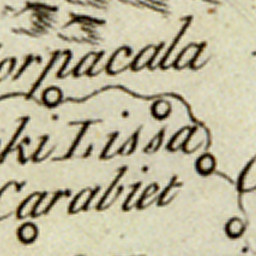 orpacala
ki Lissa
Carabiet